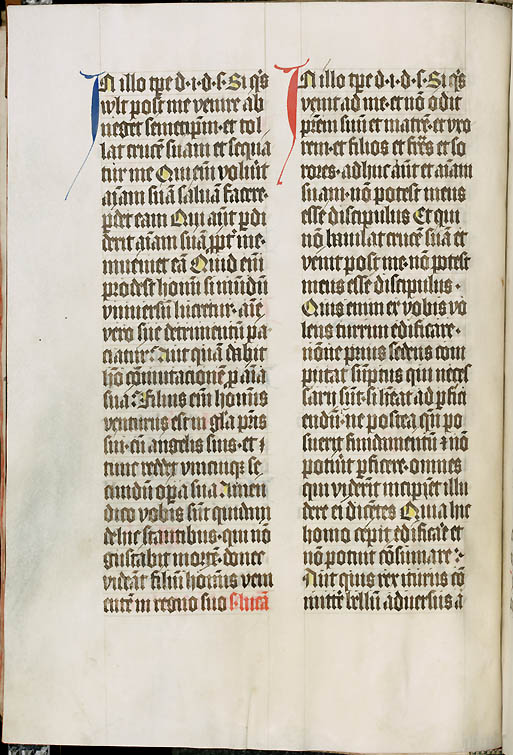 In illo tpe d·i·d·s·Si q̃s
vlt post me venire ab
neget semetip̃m·et tol
lat crucẽ suam et sequa
tur me Qui em̃ voluit
aĩam suã saluã facere·
p̱det eam Qui aũt p̱di
derit aĩam suã ꝓpt̃ me·
inueniet eã Quid em̃
prodest homĩ si mũdũ
vniuersũ lucretur· aĩe
vero sue detrimentũ pa
ciatur Aut quã dabit
hõ cõmutacionẽ p̱ aĩa
sua Filius em̃ hominis
venturus est in gl̃a pr̃is
sui·cũ angelis suis·et
tunc reddet vnicuiqꝫ se
cundũ oꝑa sua Amen
dico vobis sũt quidam
de hic stantibus·qui nõ
gustabũt mortẽ·donec
videãt filiũ hominis veni
entẽ in regno suo s·lucã
In illo tpe d·i·d·s·Si q̃s
venit ad me·et nõ odit
pr̃em suũ et matrẽ·et vxo
rem·et filios et fr̃es et so
rores·adhuc aũt et aĩam
suam·nõ potest meus
esse discipulus Et qui
nõ baiulat crucẽ suã et
venit post me·nõ potest
meus esse discipulus·
Quis enim ex vobis vo
lens turrim edificare·
nõne prius sedens com
putat sũptus qui neces
sarij sũt·si habeat ad ꝑfici
endũ·ne postea q̃m po
suerit fundamentũ ⁊ nõ
potuit ꝑficere·omnes
qui viderĩt incipiãt illu
dere ei dicẽtes Quia hic
homo cepit edificare et
nõ potuit cõsumare·
Aut quis rex iturus cõ
mittere bellũ aduersus a